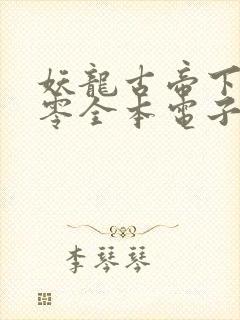 妖龍古帝下
零全本電子
李琴琴